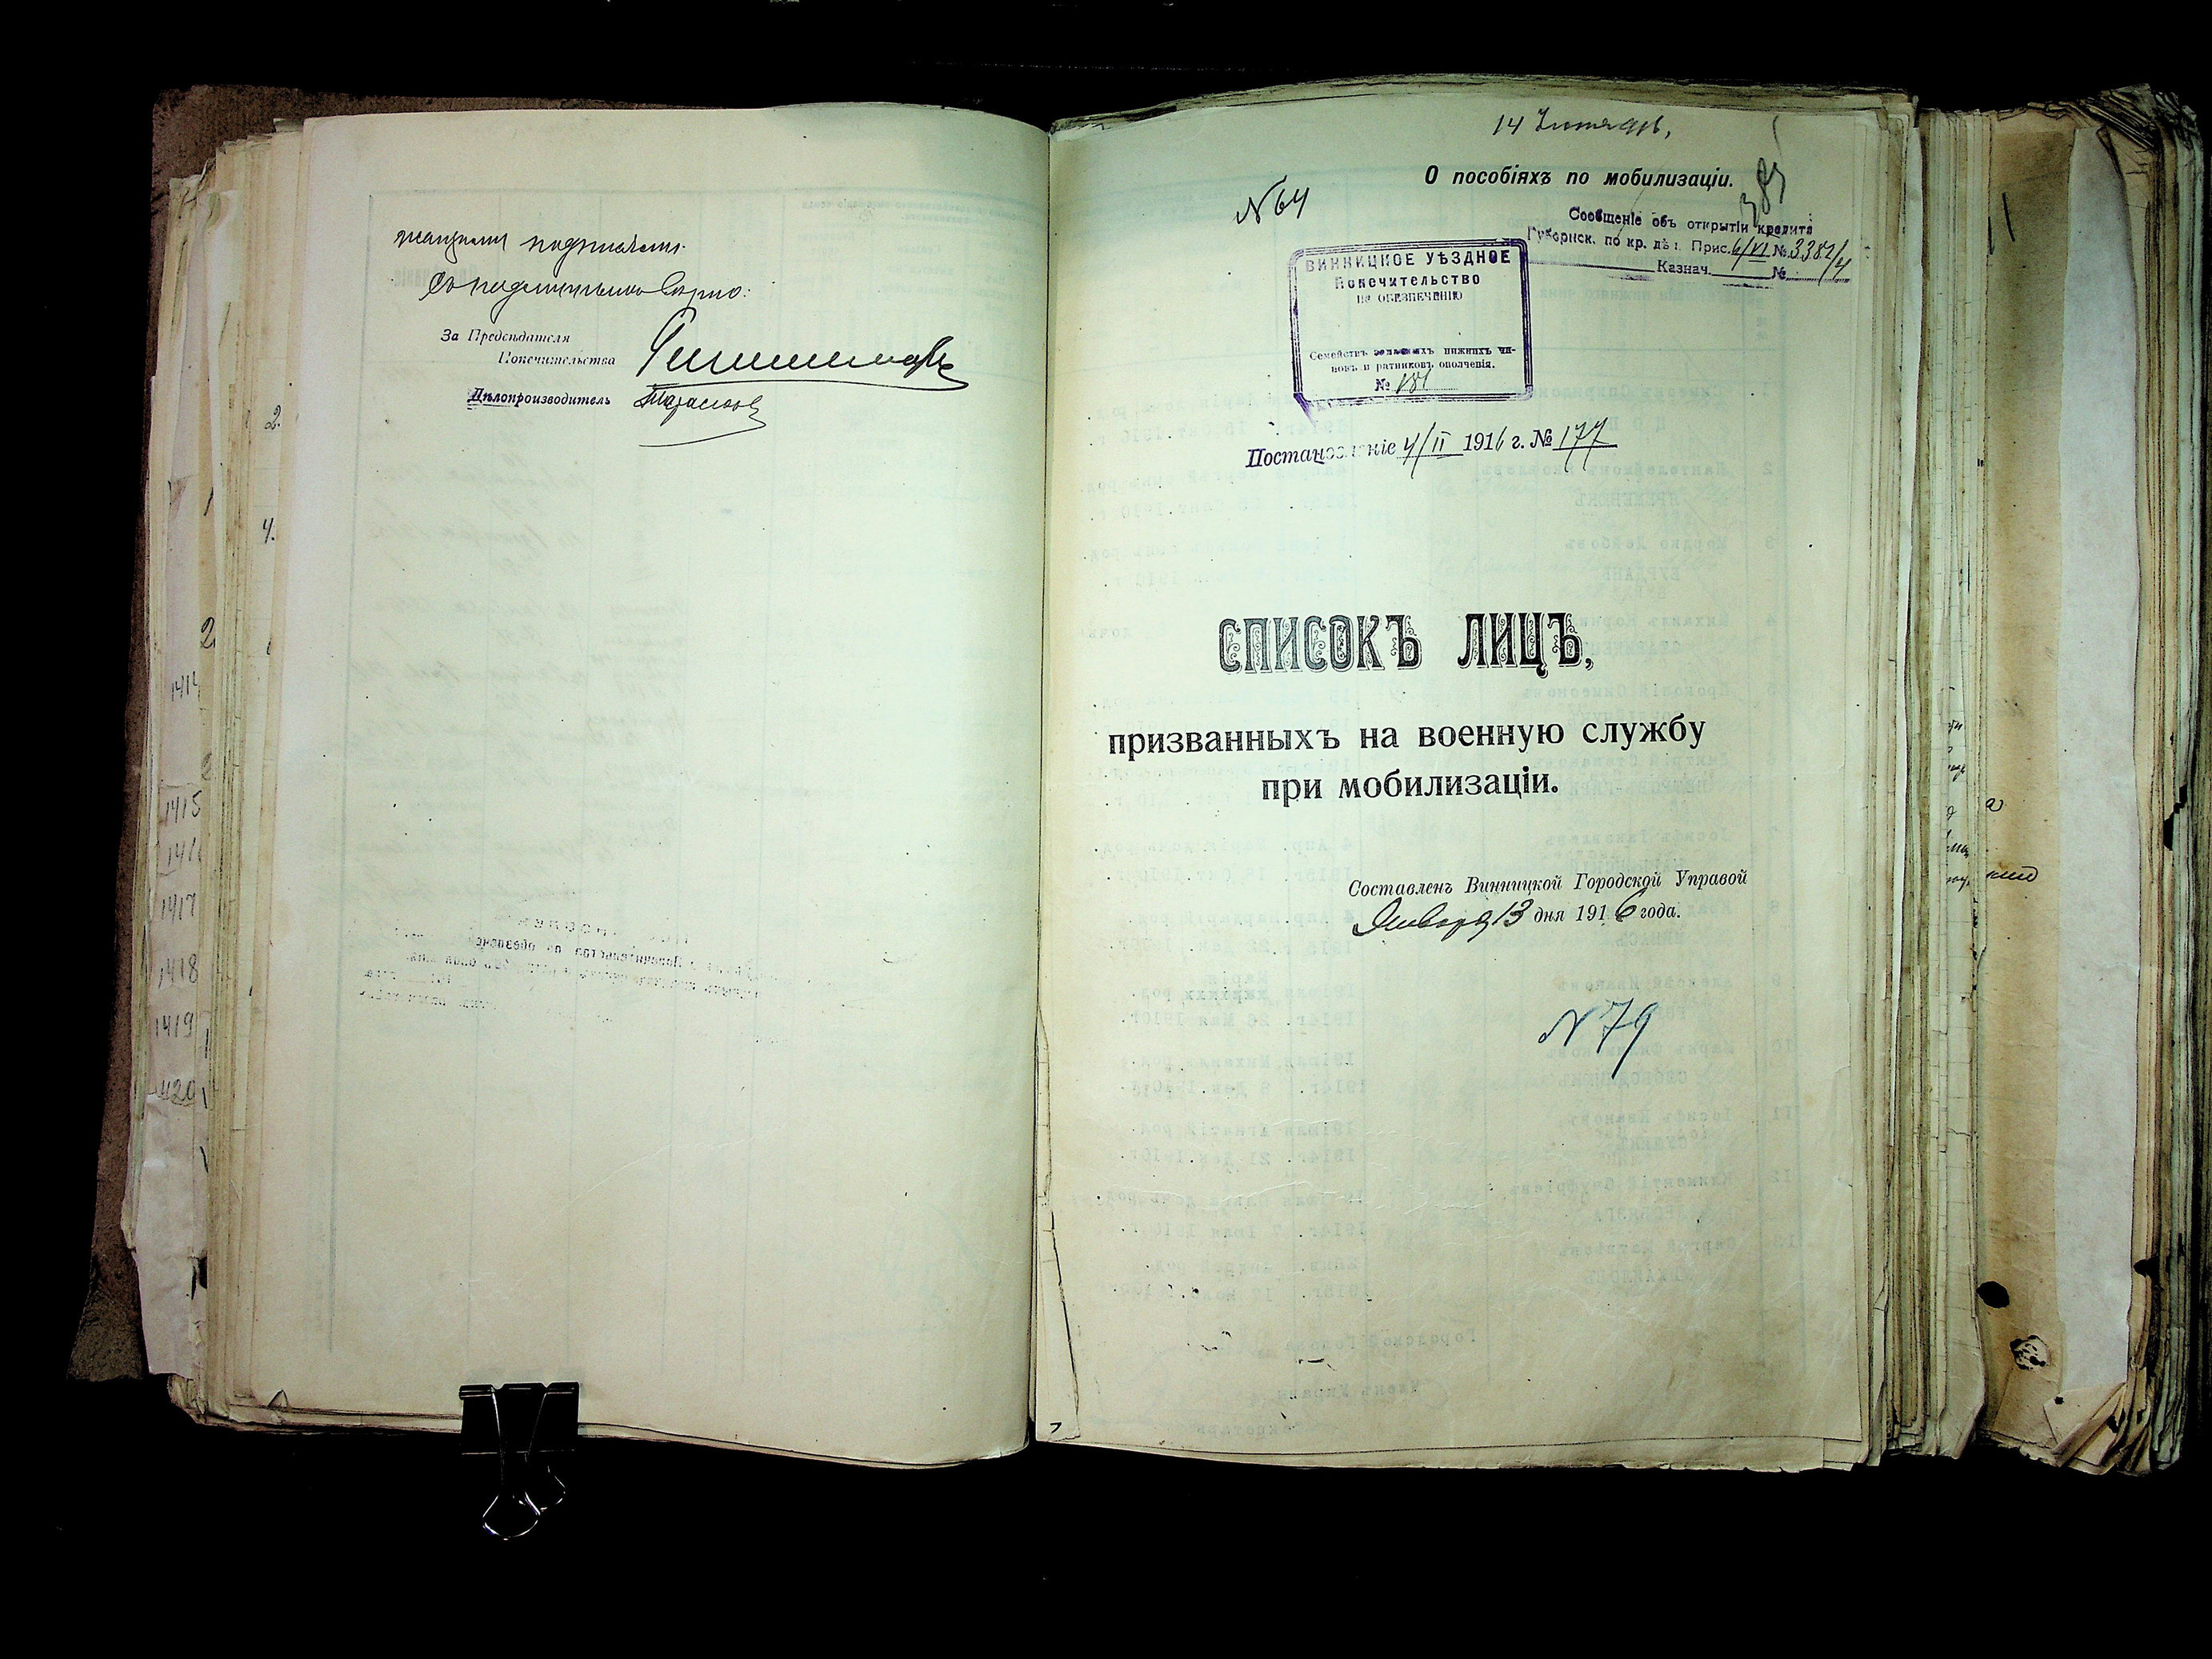 жащими подписями.
Съ подлиннымъ вѣрно:
За Предсѣдателя
Попечительства
Дѣлопроизводитель
14
О пособіяхъ по мобилизаціи.
385
N 64
Сообщеніе объ открытіи кредита
Губернск. по кр. дѣл. Прис. 6/VI № 3382/4
Казнач. №
ВИННИЦКОЕ УѢЗДНОЕ
Попечительство
по ОБЕЗПЕЧЕНІЮ
Семействъ запасныхъ нижнихъ чи-
новъ и ратниковъ ополченія.
№ 181
Постановленіе 4/II 1916 г. № 177
СПИСОКЪ ЛИЦЪ,
призванныхъ на военную службу
при мобилизаціи.
Составленъ Винницкой Городской Управой
Января 13 дня 1916 года.
N 79
2.
4.
2
1414
1415
1416
1417
1418
1419
1420